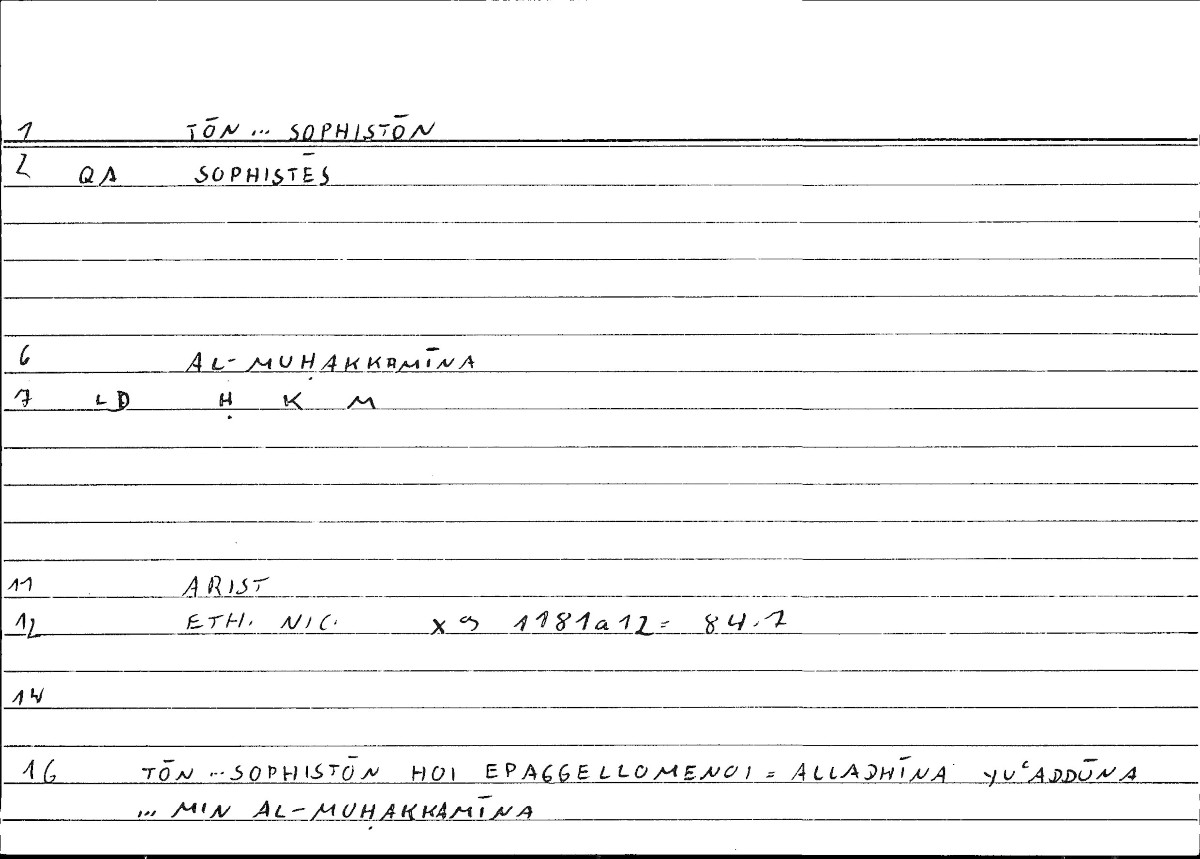 1 TŌN ... SOPHISTŌN
2 QA SOPHISTĒS
6 AL-MUḤAKKAMĪNA
7 LD Ḥ K M
11 ARIST
12 ETH. NIC. X 9 1181a12 = 84.7
14
16 TŌN ... SOPHISTŌN HOI EPAGGELLOMENOI = ALLADHĪNA YUʿADDŪNA
... MIN AL-MUḤAKKAMĪNA